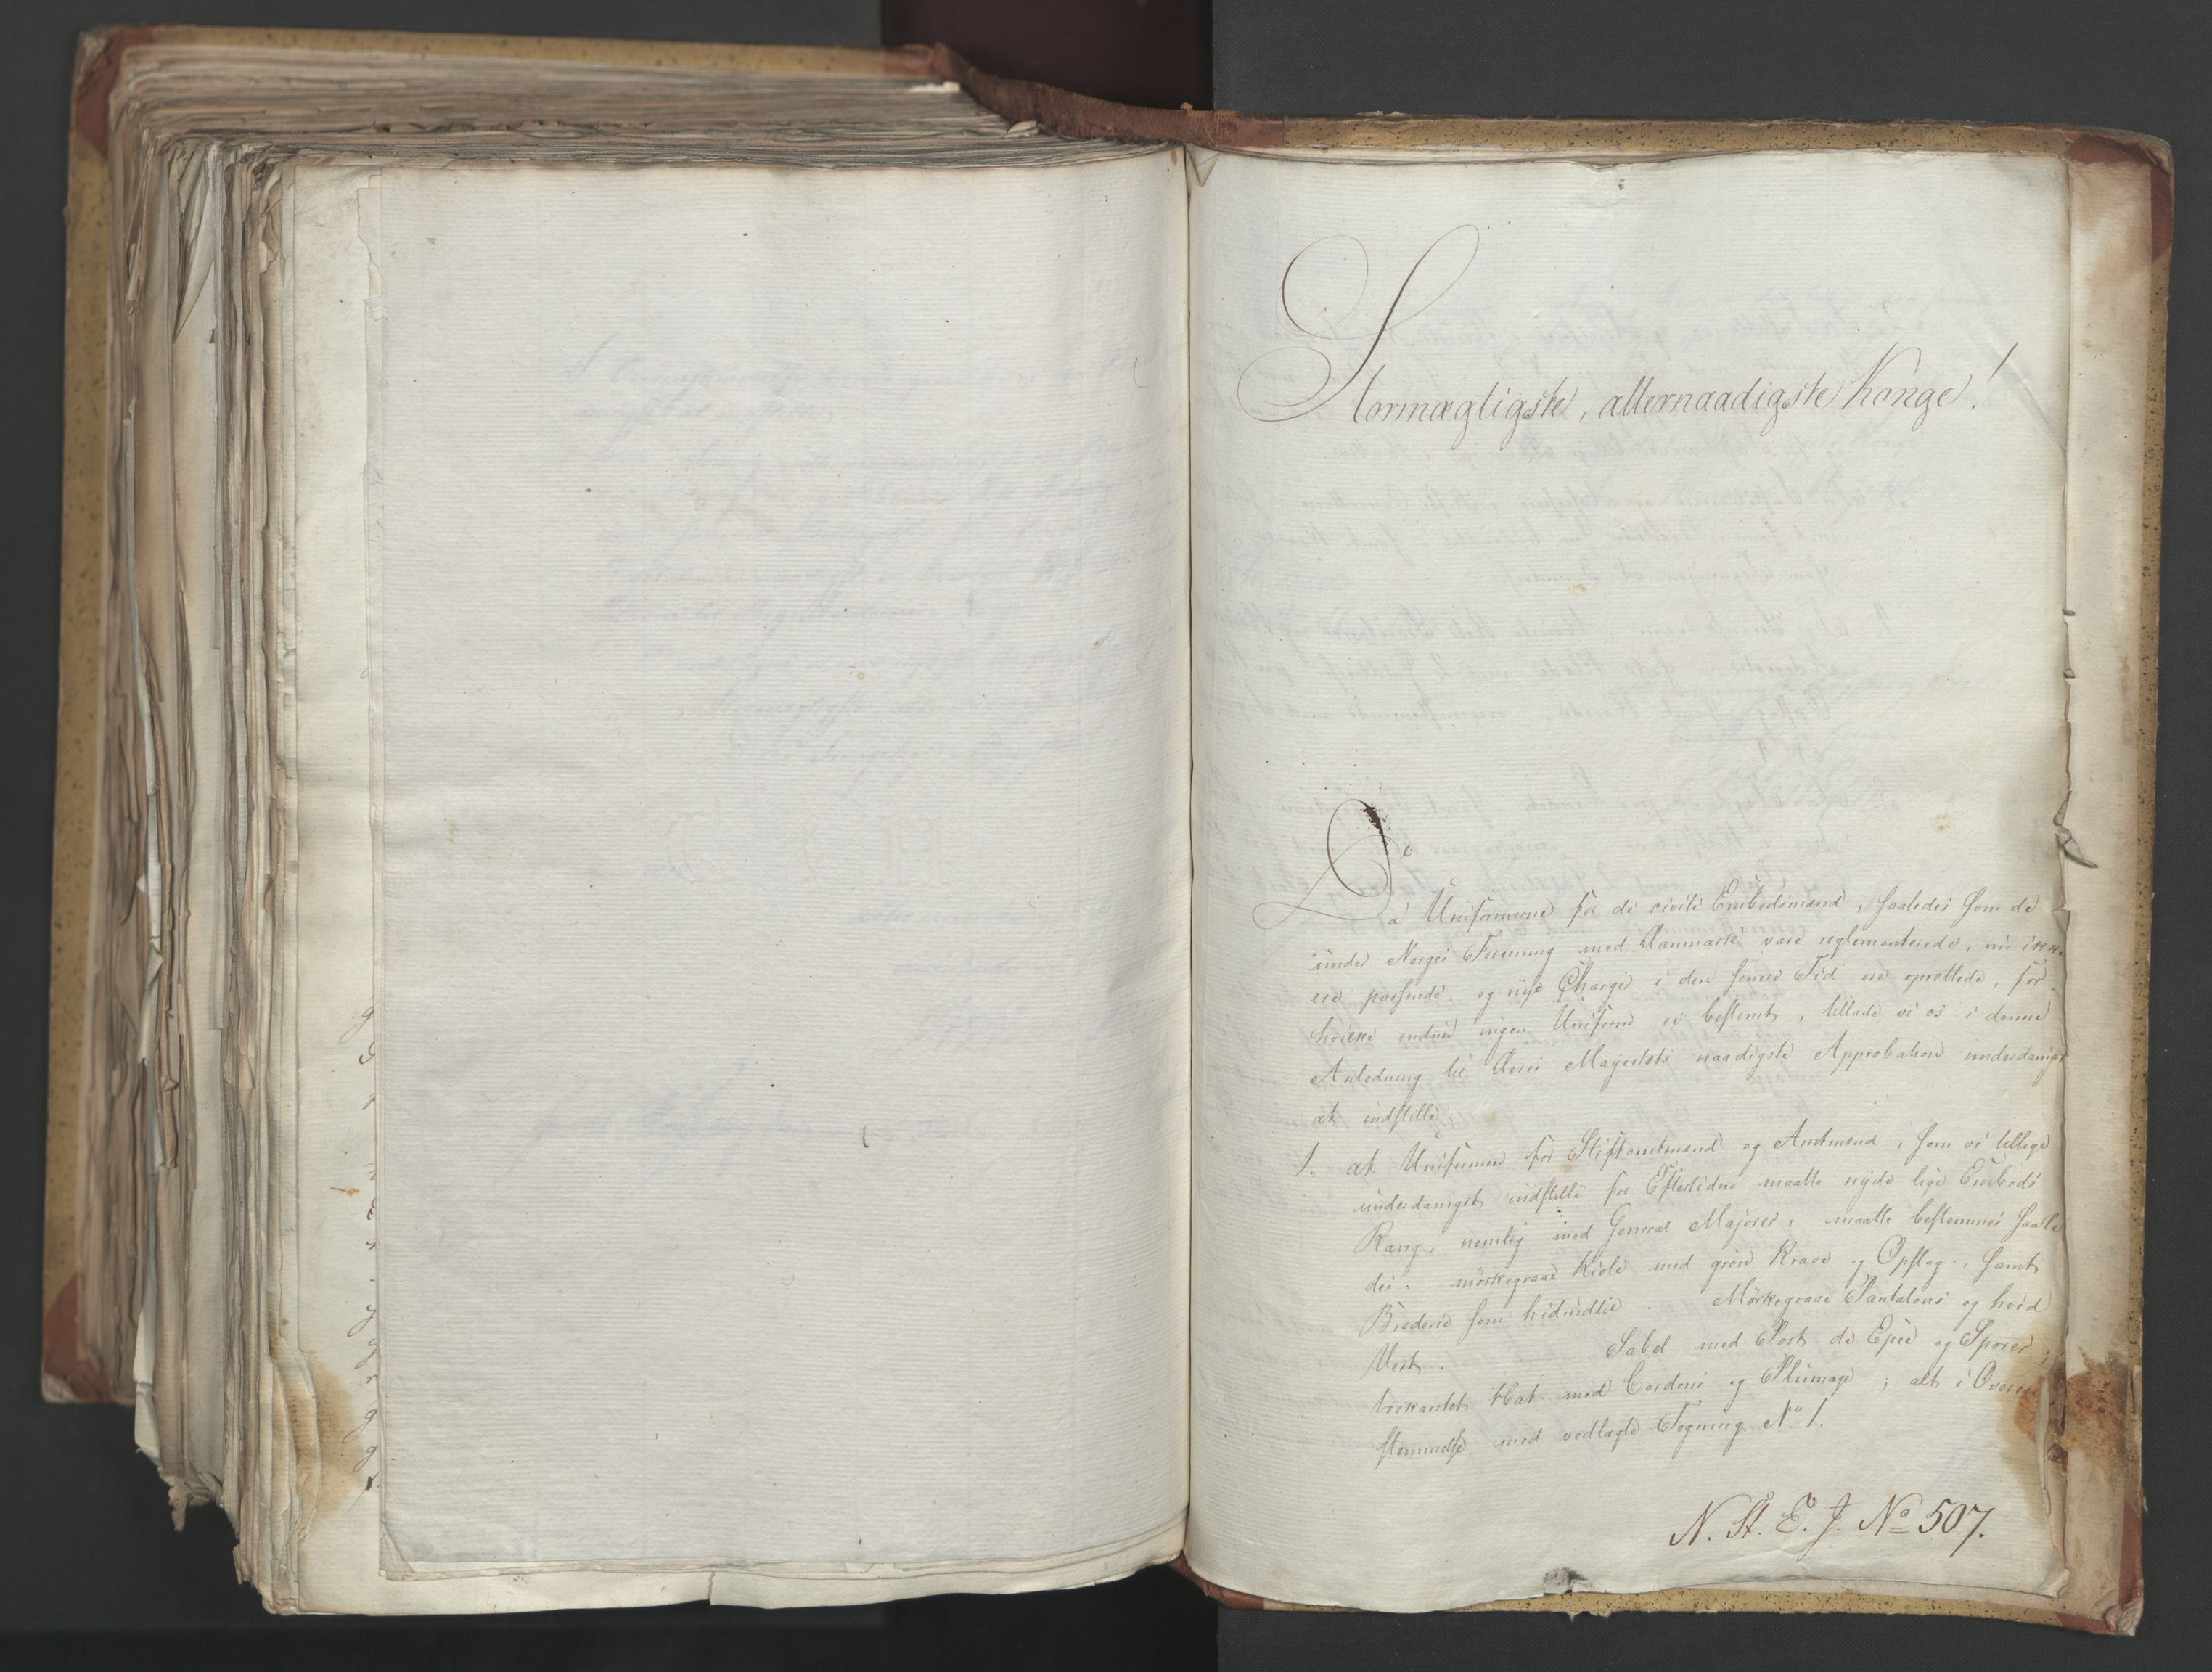 Stormægtigste, allernaadigste Konge!
Da Uniformerne for de civile Embedsmænd, saaledes som de
under Norges Forening med Danmark vare reglementerede, nu ikke
ere passende, og nye Charger i den senere Tid ere oprettede, for
hvilke endnu ingen Uniform er bestemt, tillade vi os i denne
Anledning til Deres Majestæts naadigste Approbation underdanigst
at indstille:
1. at Uniformen for Stiftamtmænd og Amtmænd, som vi tillige
underdanigst indstille for Eftertiden maatte nyde lige Embeds
Rang, nemlig med General Majorer, maatte bestemmes saale
des: mörkegraae Kiole med grön Krave og Opslag, samt
Broderie som hidindtil. Mörkegraae Pantalons og hvid
Vest. Sabel med Port de Epée og Sporer;
trekantet Hat med Cordons og Plumage; alt i Overens
stemmelse med vedlagte Tegning No 1.
N. St. E. J. No 507.